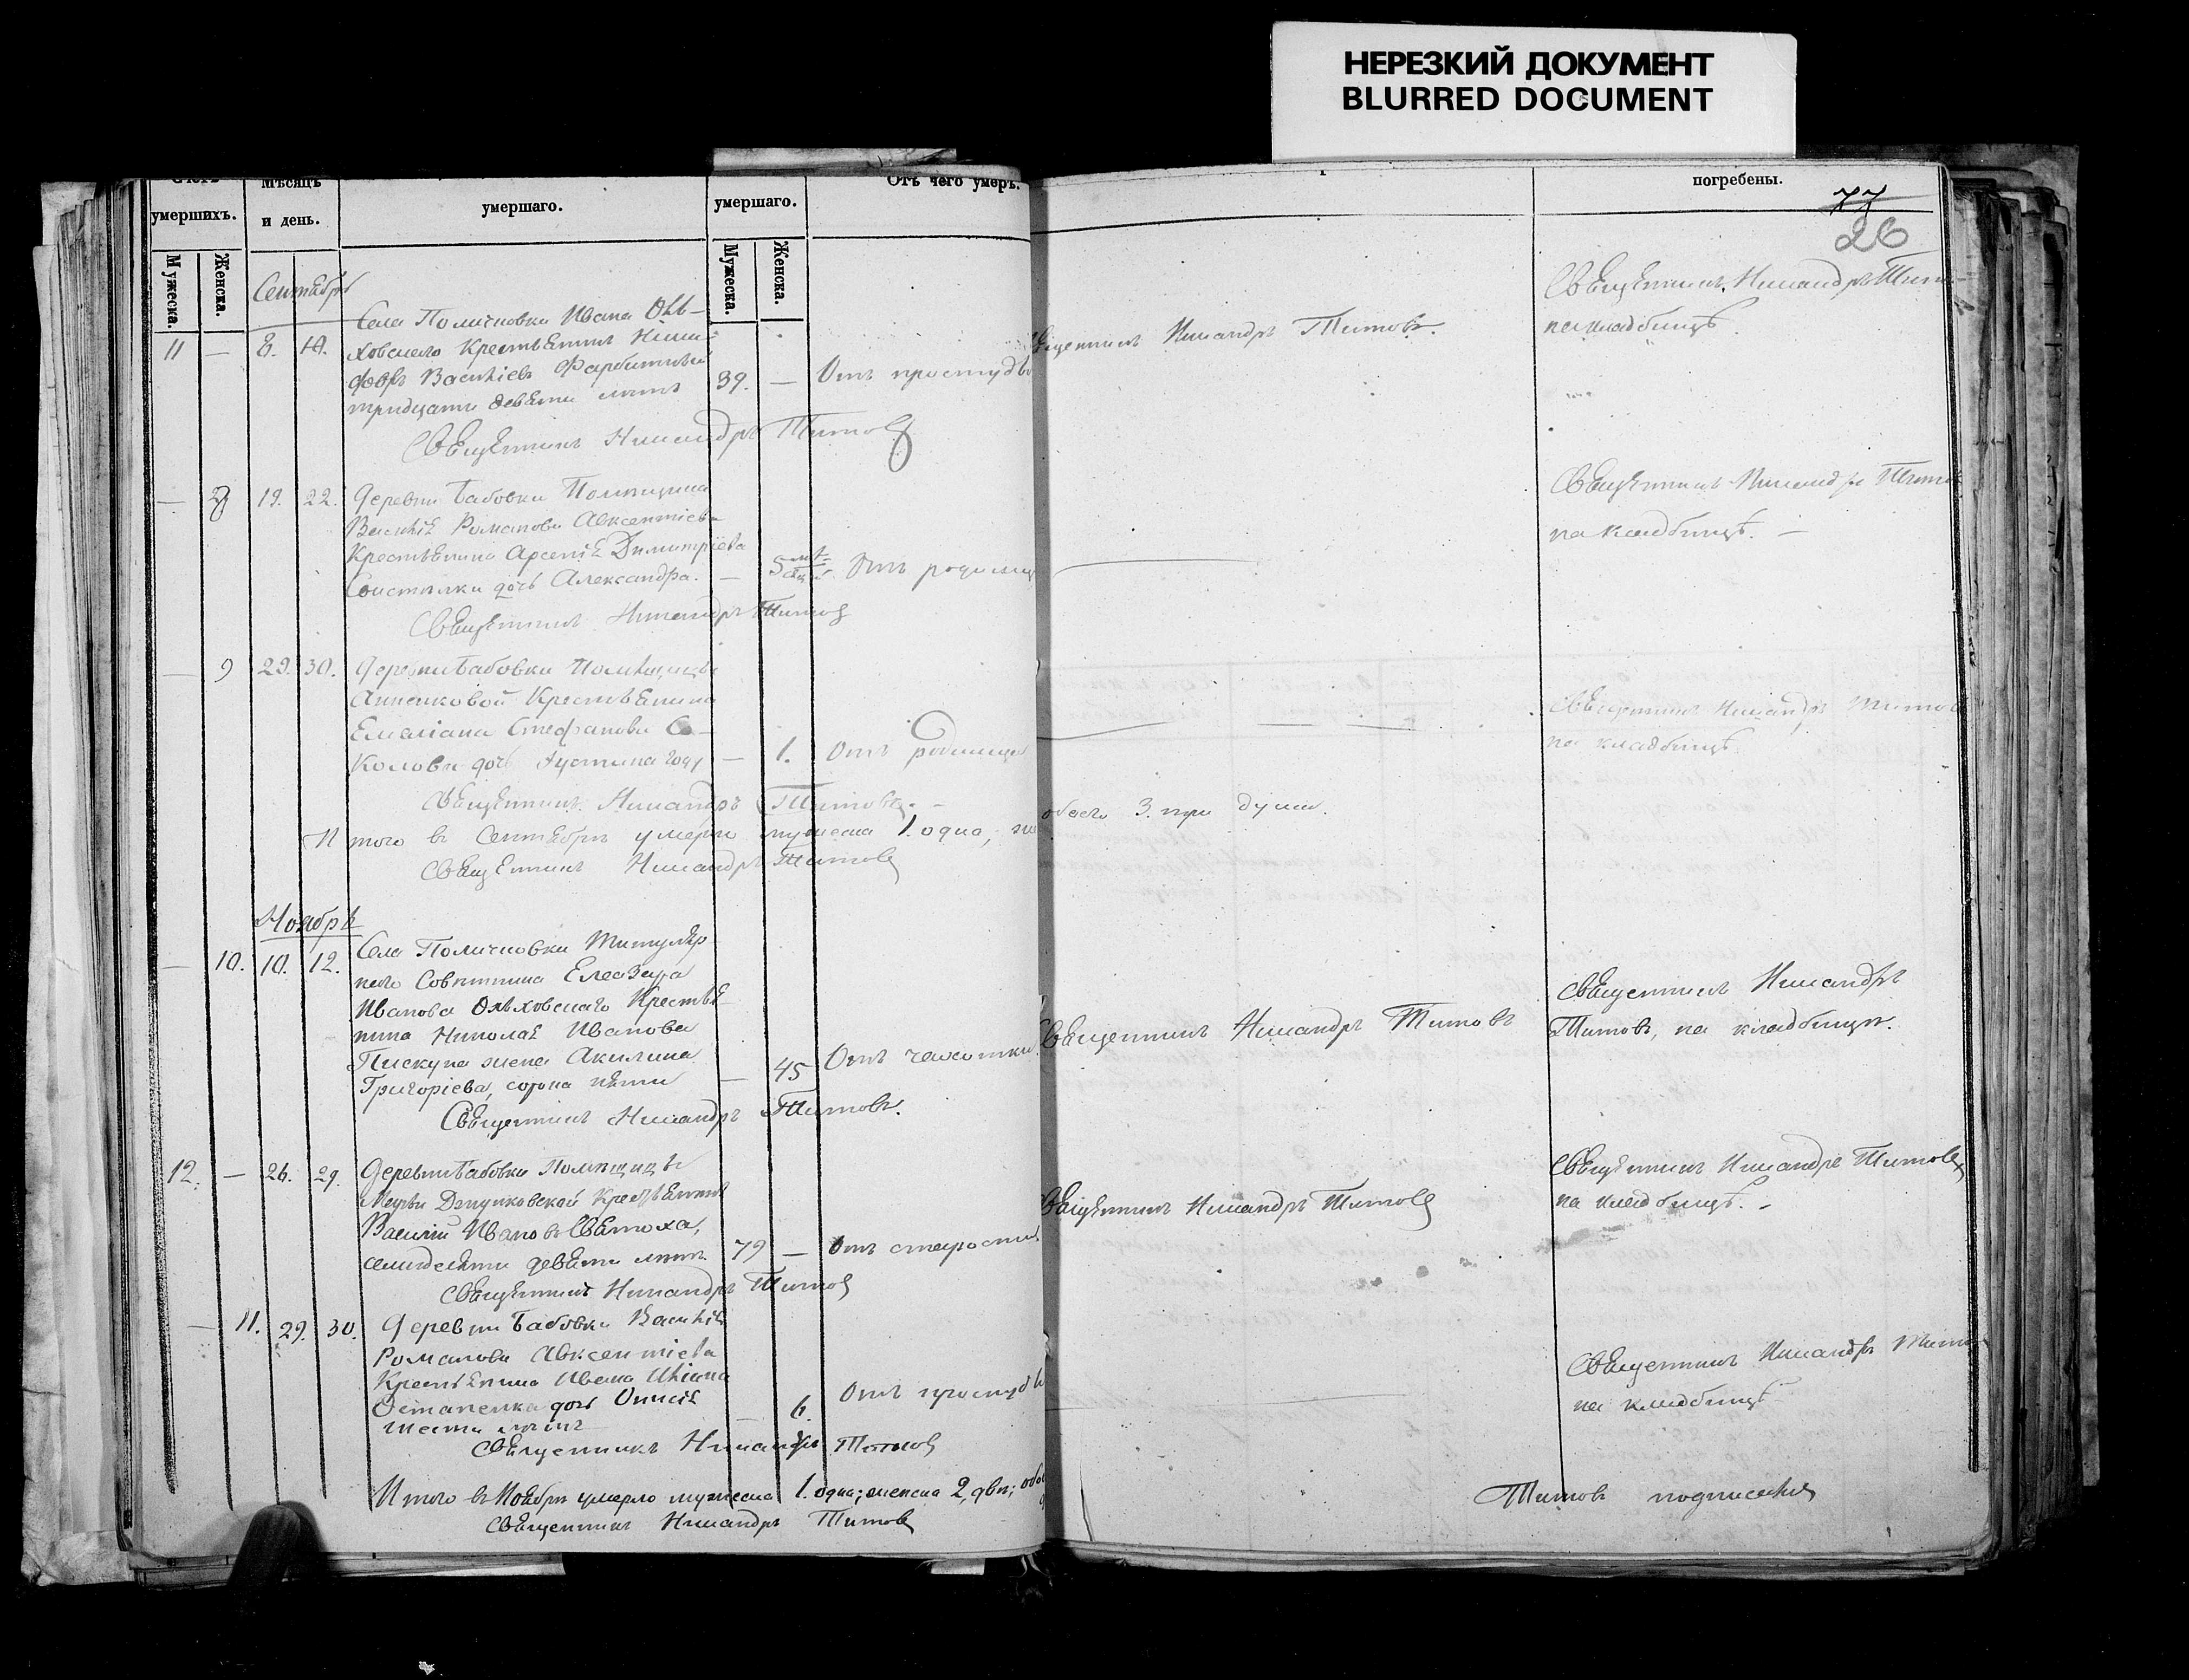 НЕРЕЗКИЙ ДОКУМЕНТ
BLURRED DOCUMENT
умершихъ.
Мѣсяцъ
и день.
умершаго.
умершаго.
Отъ чего умеръ.
Мужеска.
Женска.
Мужеска.
Женска.
погребены.
77
26
Сентябрь
Села Поличковки Ивана Олѣ-
11 — 8. 10. ховскаго Крестьянинъ Ники-
форъ Васильевъ
тридцати девяти лѣтъ 39. — Отъ простуды
Священникъ Никандръ Титовъ
Священникъ Никандръ Титовъ.
Священникъ Никандръ Титовъ
на кладбищѣ.
— 8 19. 22. Деревни Бабовки Помѣщика
Василія Романова Авксентіева
Крестьянина Арсенія Димитріева
дочь Александра. — 5 Отъ родимца
Священникъ Никандръ Титовъ
Священникъ Никандръ Титовъ
на кладбищѣ. —
— 9 29. 30. Деревни Бабовки Помѣщицы
Анненковой Крестьянина
Емеліана Стефанова Со-
колова дочь Іустина году — 1. Отъ родимца
Священникъ Никандръ Титовъ. —
Священникъ Никандръ Титовъ
на кладбищѣ.
Итого въ Сентябрѣ умерло мужеска 1. одно,
обоего 3. три души.
Священникъ Никандръ Титовъ
Ноябрь
— 10. 10. 12. Села Поличковки Титуляр
наго Совѣтника Елеазара
Иванова Олѣховскаго Крестья
нина Николая Иванова
Пискуна жена Акилина
Григоріева, сорока пяти — 45 Отъ чахотки
Священникъ Никандръ Титовъ.
Священникъ Никандръ Титовъ
Священникъ Никандръ
Титовъ, на кладбищѣ.
12. — 26. 29. Деревни Бабовки Помѣщицы
Крестьянинъ
Василій Ивановъ Святоха,
семидесяти девяти лѣтъ 79 — Отъ старости
Священникъ Никандръ Титовъ
Священникъ Никандръ Титовъ
Священникъ Никандръ Титовъ
на кладбищѣ. —
— 11. 29. 30. Деревни Бабовки Василія
Романова Авксентіева
Крестьянина Ивана
Остапенка дочь
шести лѣтъ — 6. Отъ простуды
Священникъ Никандръ Титовъ
Священникъ Никандръ Титовъ
на кладбищѣ
Итого въ Ноябрѣ умерло мужеска 1. одна; женска 2, двѣ; обое
Священникъ Никандръ Титовъ
Титовъ подписался